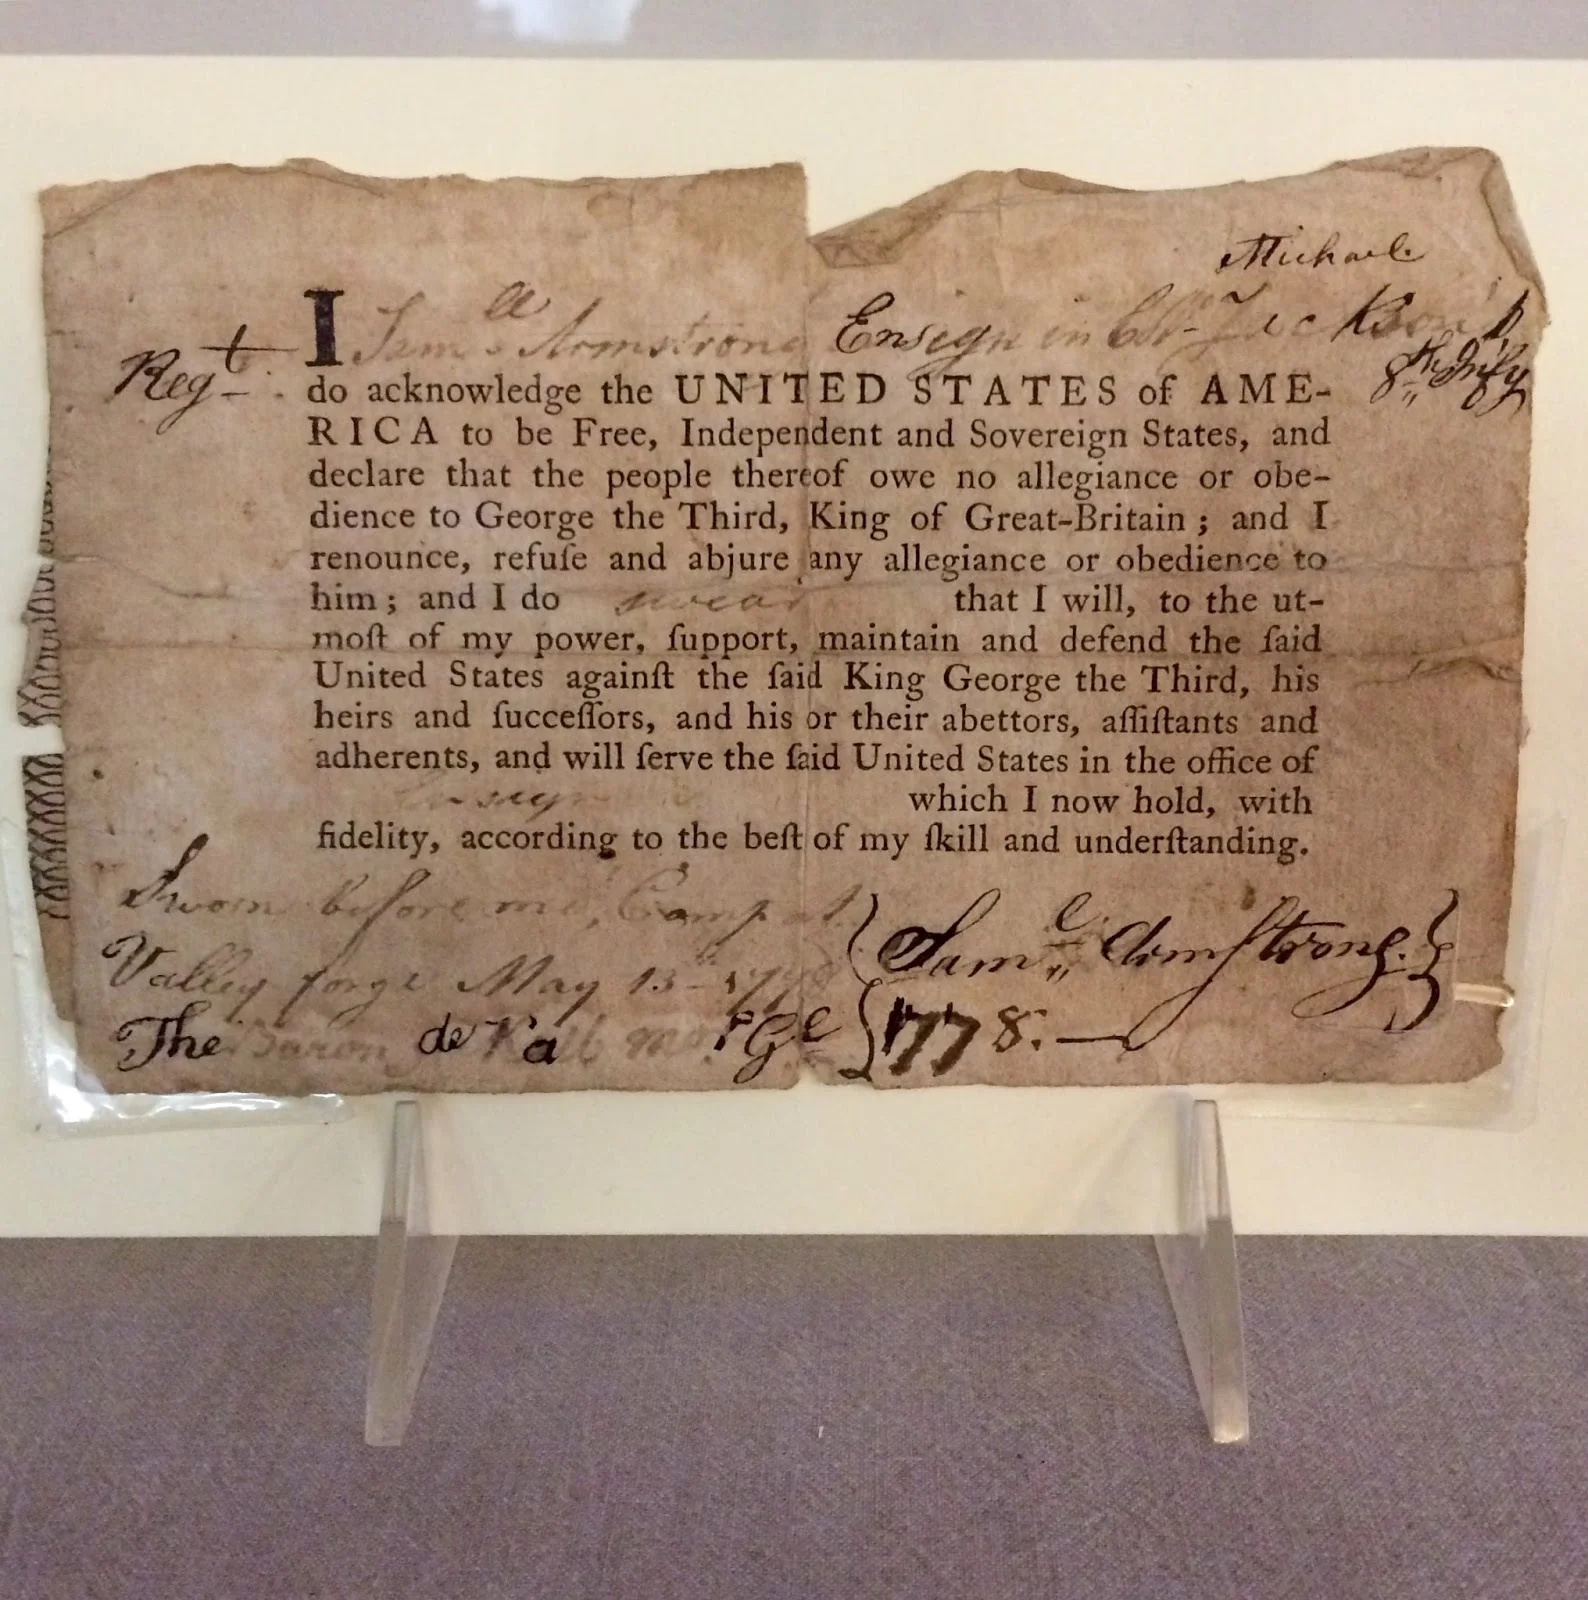 Michael
I Sam^ll Armstrong Ensign in Col^o Jackson's
Reg^t 8^th Inf^y
do acknowledge the UNITED STATES of AME-
RICA to be Free, Independent and Sovereign States, and
declare that the people thereof owe no allegiance or obe-
dience to George the Third, King of Great-Britain ; and I
renounce, refuſe and abjure any allegiance or obedience to
him ; and I do swear that I will, to the ut-
moſt of my power, ſupport, maintain and defend the ſaid
United States againſt the ſaid King George the Third, his
heirs and ſucceſſors, and his or their abettors, aſſiſtants and
adherents, and will ſerve the ſaid United States in the office of
Ensign which I now hold, with
fidelity, according to the beſt of my ſkill and underſtanding.
Sworn before me, Camp at
Valley forge May 13^th 1778
The Baron de Kalb
Sam^l Armſtrong.
1778.